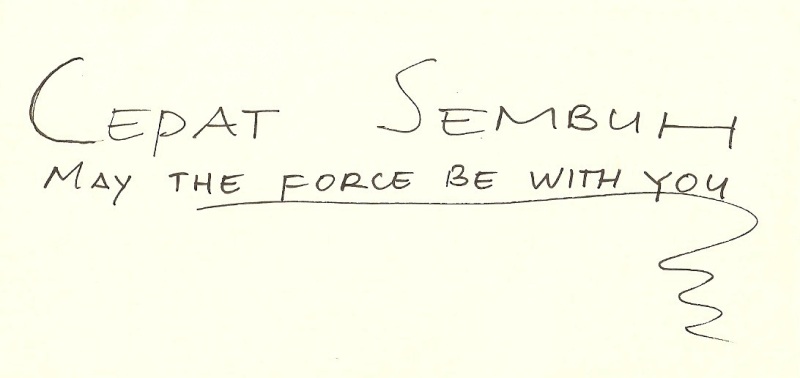 CEPAT SEMBUH
MAY THE FORCE BE WITH YOU